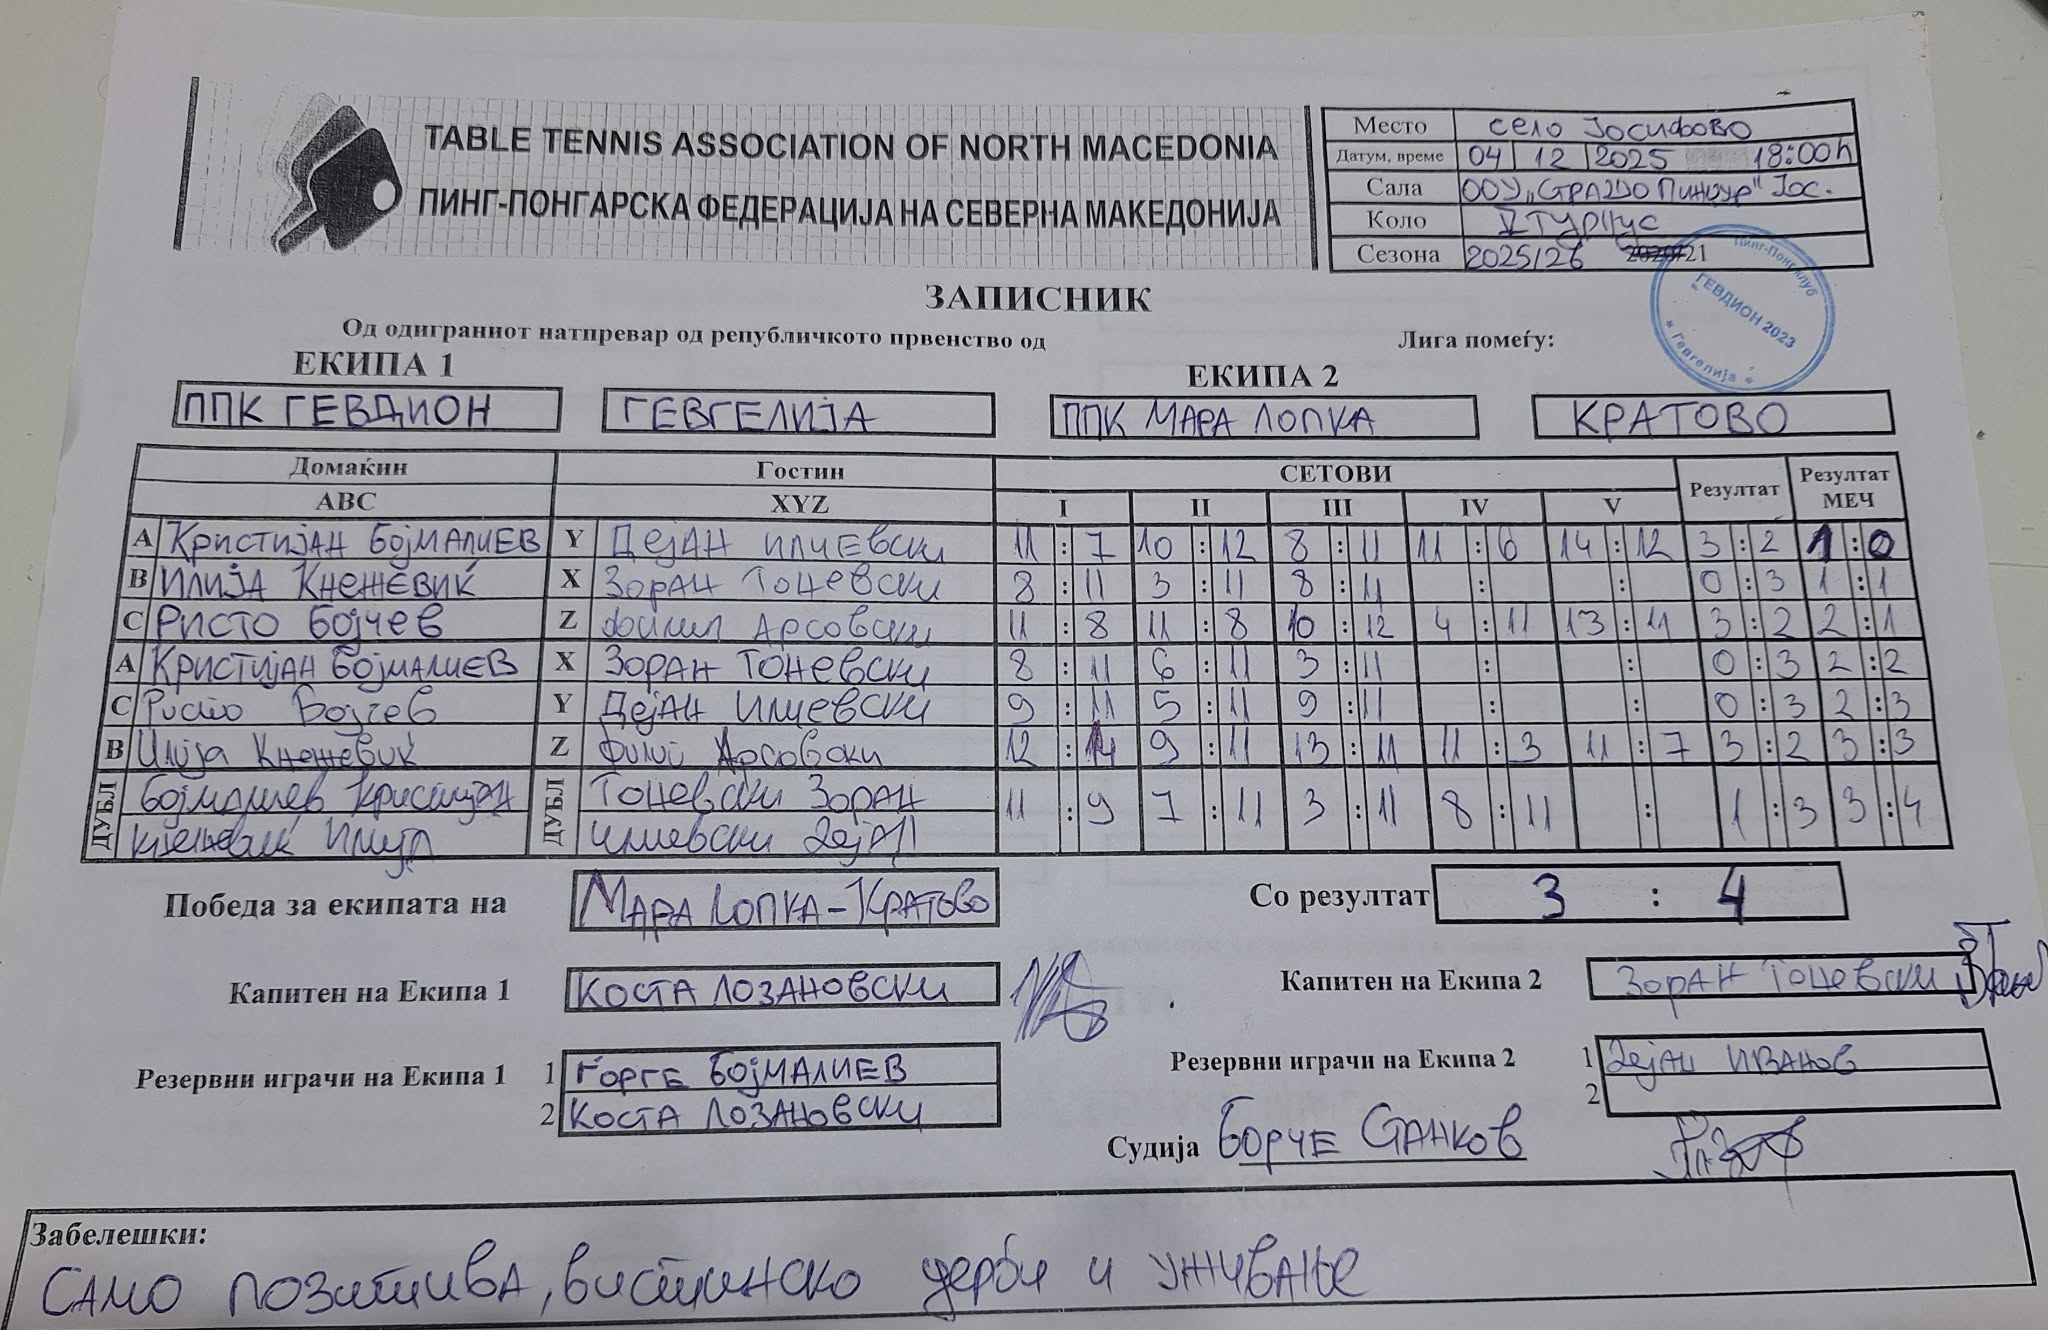 TABLE TENNIS ASSOCIATION OF NORTH MACEDONIA
ПИНГ-ПОНГАРСКА ФЕДЕРАЦИЈА НА СЕВЕРНА МАКЕДОНИЈА
Место село Јосифово
Датум, време 04 12 2025 18:00h
Сала ООУ „СТРАШО ПИНЏУР" Јос.
Коло V ТУРНУС
Сезона 2025/26 21
Пинг-Понг клуб ГЕВДИОН 2023 * Гевгелија *
ЗАПИСНИК
Од одиграниот натпревар од републичкото првенство од Лига помеѓу:
ЕКИПА 1 ЕКИПА 2
ППК ГЕВДИОН ГЕВГЕЛИЈА ППК МАРА ЛОПКА КРАТОВО
Домаќин Гостин СЕТОВИ Резултат Резултат МЕЧ
ABC XYZ I II III IV V
A КРИСТИЈАН БОЈМАЛИЕВ Y ДЕЈАН ИЛИЕВСКИ 11 : 7 10 : 12 8 : 11 11 : 6 14 : 12 3 : 2 1 : 0
B ИЛИЈА КНЕЖЕВИЌ X ЗОРАН ТОНЕВСКИ 8 : 11 3 : 11 8 : 11 : : 0 : 3 1 : 1
C РИСТО БОЈЧЕВ Z Филип АРСОВСКИ 11 : 8 11 : 8 10 : 12 4 : 11 13 : 11 3 : 2 2 : 1
A КРИСТИЈАН БОЈМАЛИЕВ X ЗОРАН ТОНЕВСКИ 8 : 11 6 : 11 3 : 11 : : 0 : 3 2 : 2
C Ристо Бојчев Y ДЕЈАН ИЛИЕВСКИ 9 : 11 5 : 11 9 : 11 : : 0 : 3 2 : 3
B Илија Кнежевиќ Z Филип Арсовски 12 : 14 9 : 11 13 : 11 11 : 3 11 : 7 3 : 2 3 : 3
ДУБЛ Бојмалиев Кристијан ДУБЛ Тоневски Зоран 11 : 9 7 : 11 3 : 11 8 : 11 : 1 : 3 3 : 4
Кнежевиќ Илија Илиевски Дејан
Победа за екипата на МАРА ЛОПКА-КРАТОВО Со резултат 3 : 4
Капитен на Екипа 1 КОСТА ЛОЗАНОВСКИ Капитен на Екипа 2 ЗОРАН ТОНЕВСКИ
Резервни играчи на Екипа 1 1 ЃОРГЕ БОЈМАЛИЕВ Резервни играчи на Екипа 2 1 Дејан ИВАНОВ
2 КОСТА ЛОЗАНОВСКИ 2
Судија БОРЧЕ СТАНКОВ
Забелешки:
САМО ПОЗИТИВА, вистинско дерби и уживање